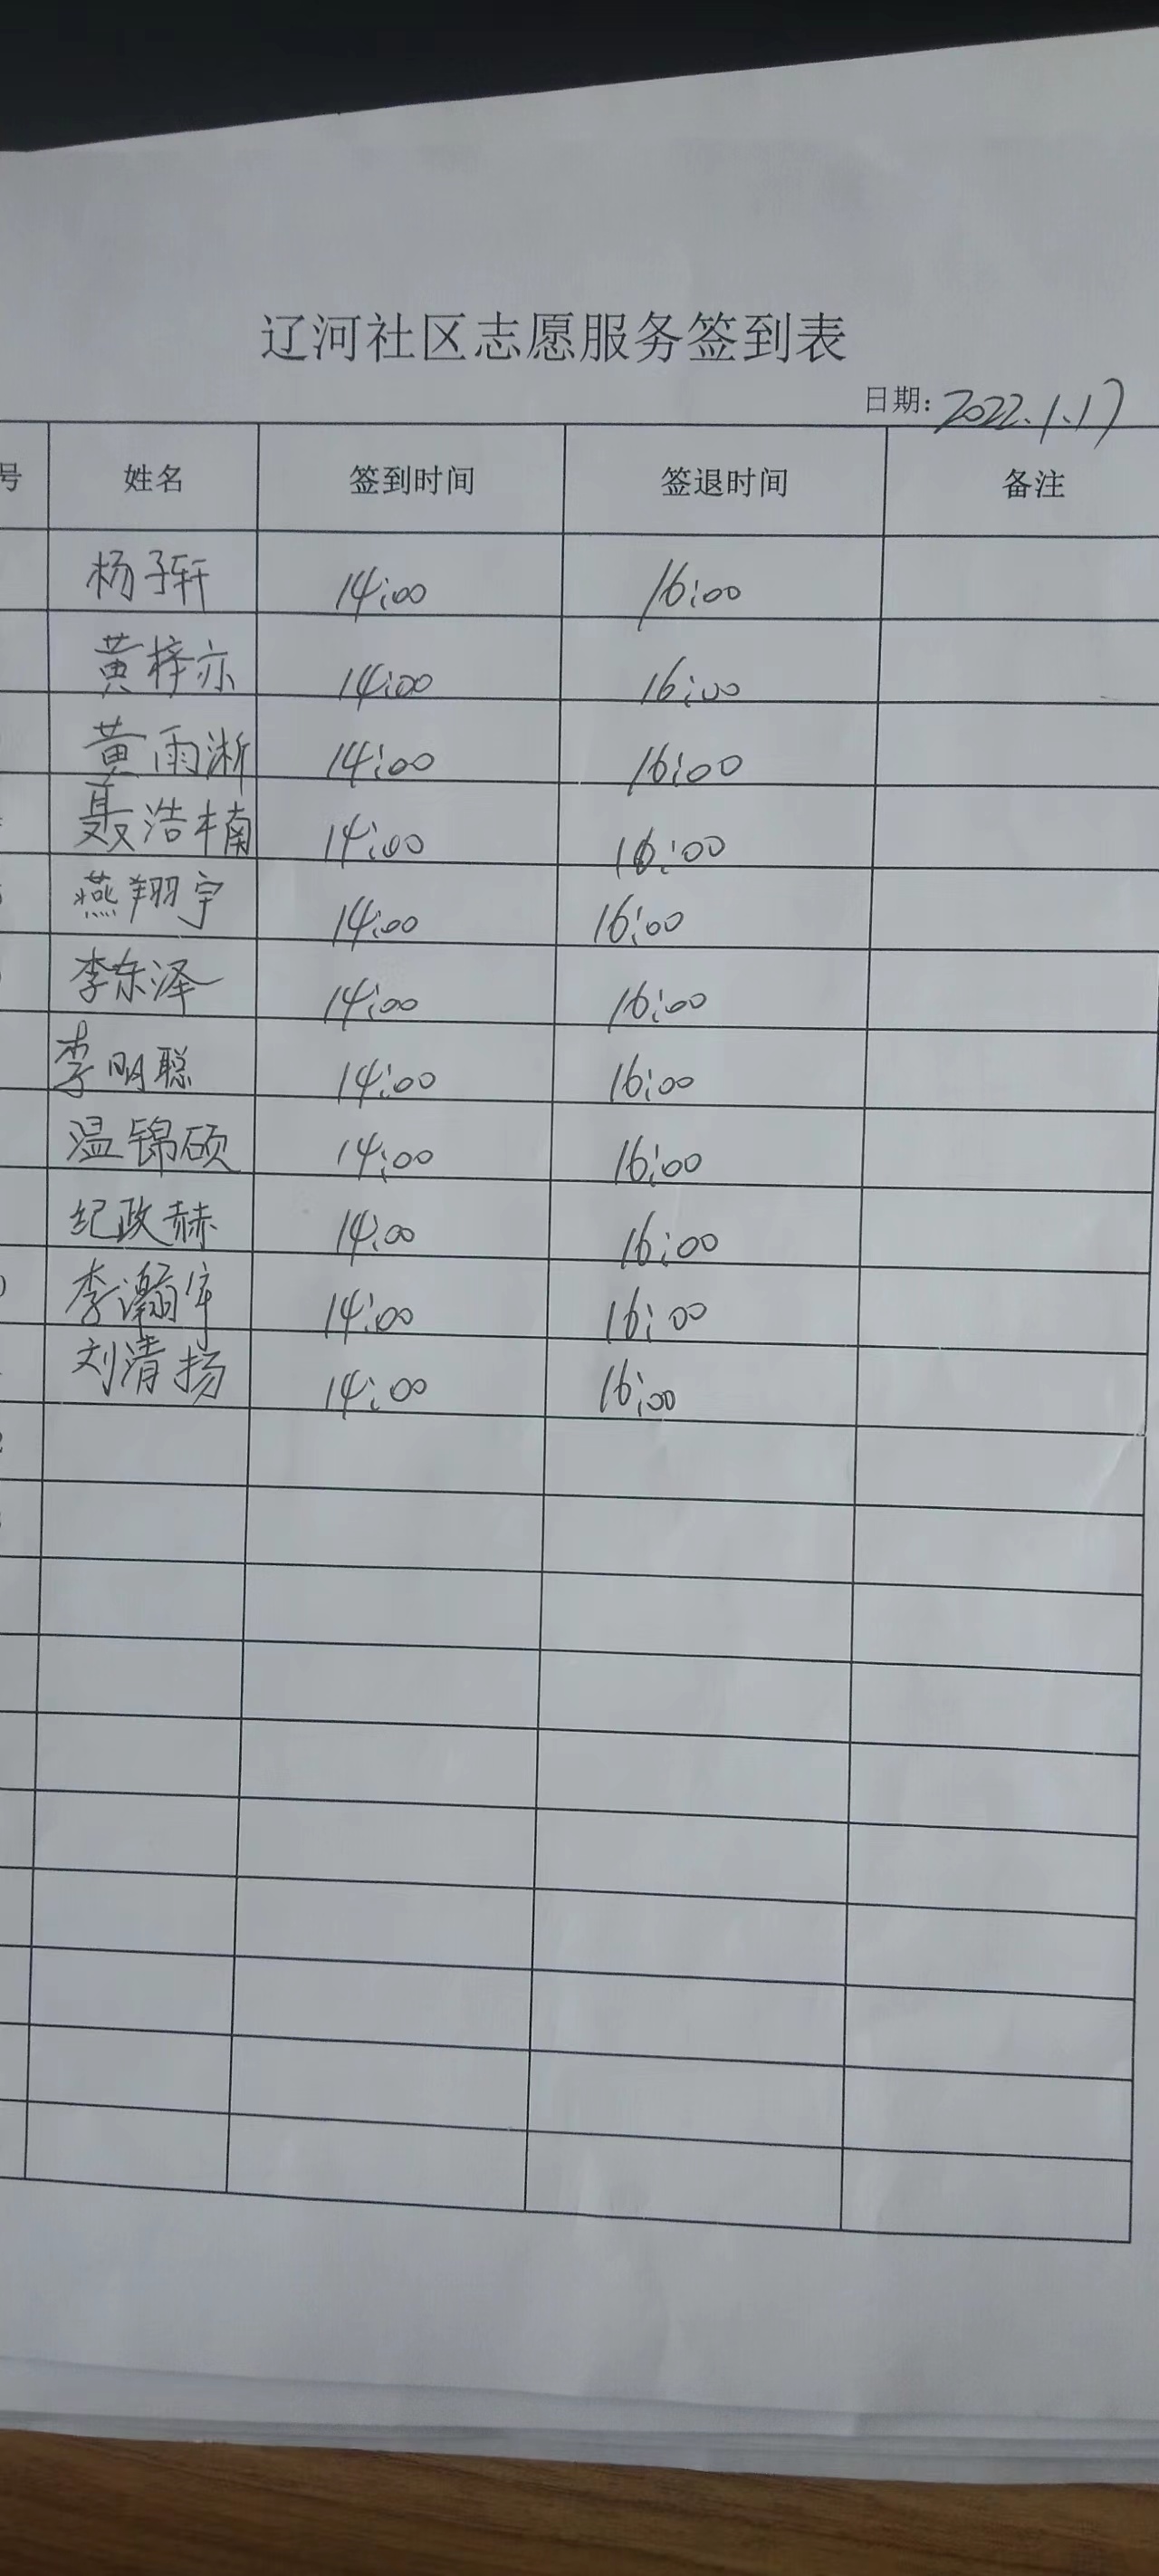 辽河社区志愿服务签到表
日期: 2022.1.17
号 姓名 签到时间 签退时间 备注
杨子轩 14:00 16:00
黄梓亦 14:00 16:00
黄雨淅 14:00 16:00
聂浩楠 14:00 16:00
燕翔宇 14:00 16:00
李东泽 14:00 16:00
李明聪 14:00 16:00
温锦硕 14:00 16:00
纪政赫 14:00 16:00
李瀚宇 14:00 16:00
刘清扬 14:00 16:00